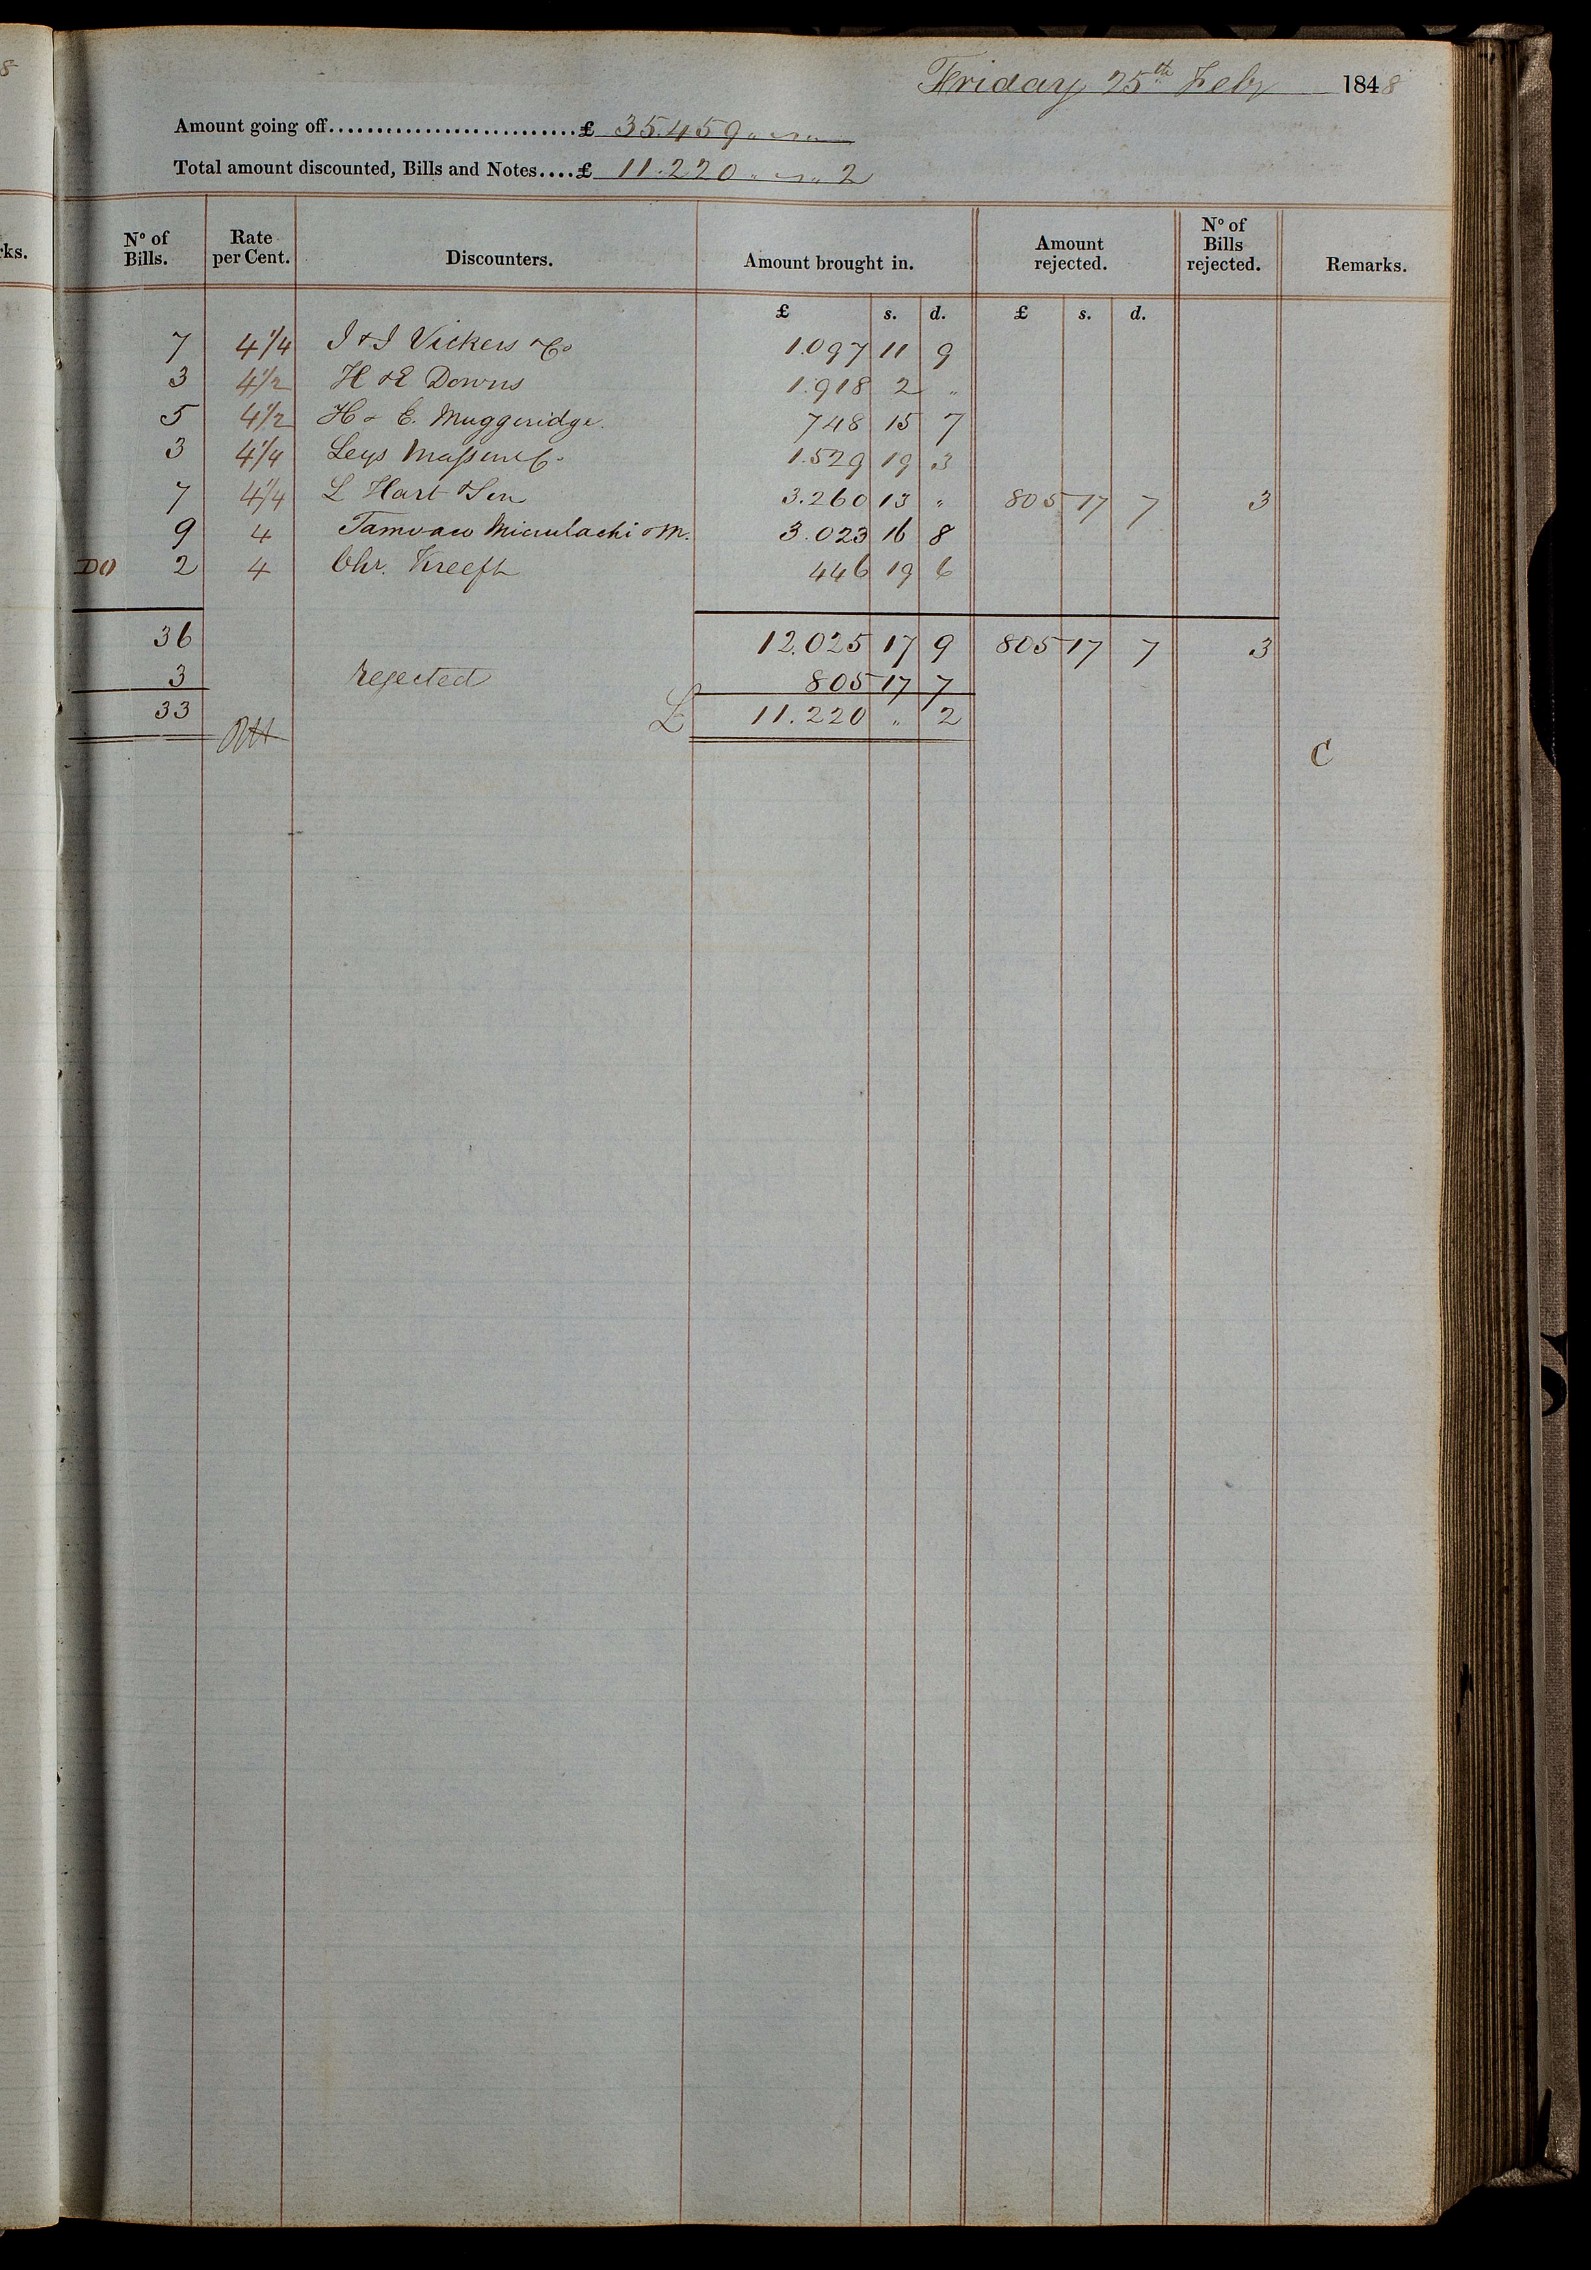 8
Friday 25th Feby 1848
Amount going off........................... £ 35.459 " " "
Total amount discounted, Bills and Notes.... £ 11.220 " " 2
rks.
No of Bills. Rate per Cent. Discounters. Amount brought in. Amount rejected. No of Bills rejected. Remarks.
£ s. d. £ s. d.
7 4 1/4 J & J Vickers & Co 1.097 11 9
3 4 1/2 H & E Downs 1.918 2 "
5 4 1/2 H & E. Muggeridge. 748 15 7
3 4 1/4 Leys Masson & C. 1.529 19 3
7 4 1/4 L Hart & Son 3.260 13 " 805 17 7 3
9 4 Tamvaco Micrulachi & M. 3.023 16 8
DO 2 4 Chr. Kreeft 446 19 6
36 12.025 17 9 805 17 7 3
3 rejected 805 17 7
33 £ 11.220 " 2
C